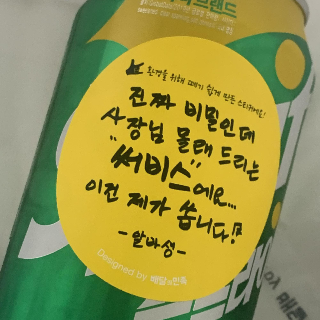 브랜드
환경을 위해 떼기 쉽게 만든 스티커에요!
진짜 비밀인데
사장님 몰래 드리는
"써비스"에요...
이건 제가 쏩니다!
-알바생-
Designed by 배달의민족